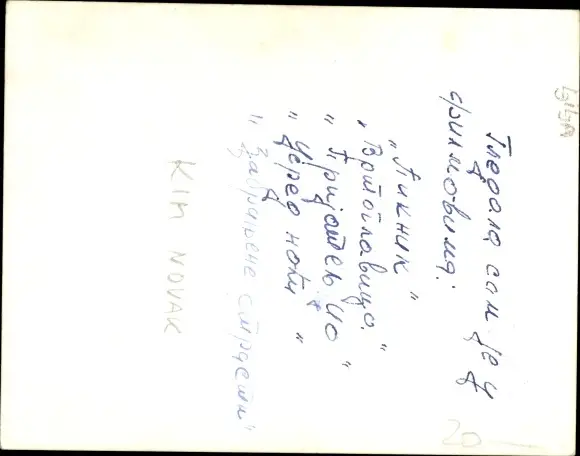 Гледала сам је у
филмовима:
„Пикник"
„Вртоглавица"
„Пријатељ Џо"
„Цárео ноћи"
„Забрањене страсти"
KIM NOVAK
20